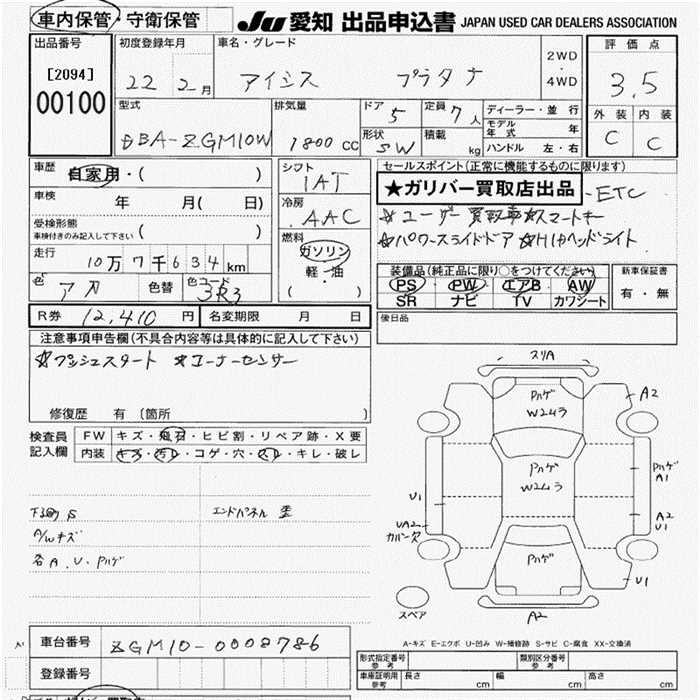 車内保管・守衛保管
JU 愛知 出品申込書 JAPAN USED CAR DEALERS ASSOCIATION
出品番号
[2094]
00100
初度登録年月
22 2月
車名・グレード
アイシス プラタナ
2WD
・
4WD
評価点
3.5
外装 内装
C C
型式
DBA-ZGM10W
排気量
1800 CC
ドア
5
定員
7人
形状
SW
積載
kg
ディーラー・並行
モデル年式 年
ハンドル 左・右
車歴
自家用・( )
車検
年 月( 日)
受検形態
車検付きのみ記入して下さい ( )
走行
10万7千634km
色
アカ
色替
色コード
3R3
シフト
IAT
冷房
AAC
燃料
ガソリン
軽・油
( )
セールスポイント(正常に機能するものに限ります)
★ガリバー買取店出品
-ETC
☆ユーザー買取車☆スマートキー
☆パワースライドドア☆HIDヘッドライト
装備品(純正品に限り○をつけてください)
PS PW エアB AW
SR ナビ TV カワシート
新車保証書
有・無
R券 12,410 円
名変期限 月 日
後日品
注意事項申告欄(不具合内容等は具体的に記入して下さい)
☆プッシュスタート ☆コーナーセンサー
修復歴 有 (箇所 )
検査員記入欄
FW キズ・飛石・ヒビ割・リペア跡・X要
内装 キズ・汚レ・コゲ・穴・スレ・キレ・破レ
下廻りS
エンドパネル 歪
A/Wキズ
各A.U.Pハゲ
スリA
Pハゲ
W2ムラ
A2
Pハゲ
W2ムラ
Pハゲ
A1
U1
A2
U1
UA2
カバー欠
Pハゲ
U1
スペア
A2
A-キズ E-エクボ U-凹み W-補修跡 S-サビ C-腐食 XX-交換済
車台番号
ZGM10-0008786
登録番号
形式指定番号
参考
類別区分番号
参考
車庫証明用
参考
長さ cm
幅 cm
高さ cm
ガリバー買取店